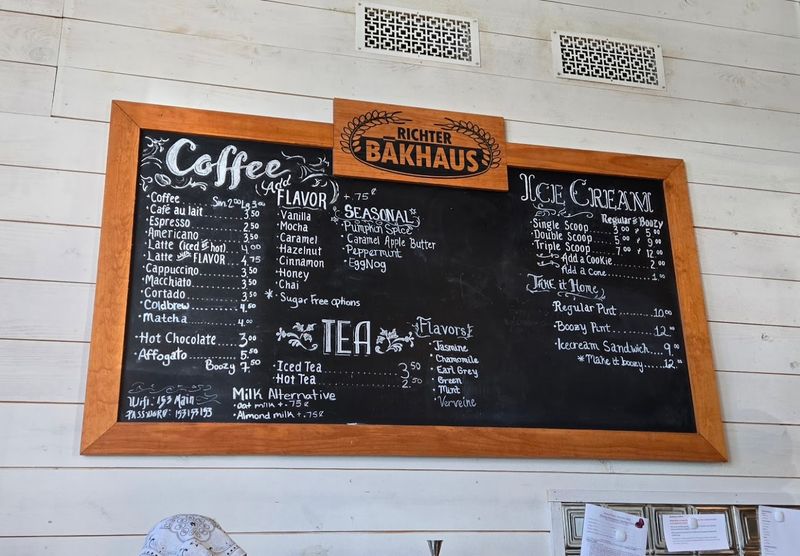 RICHTER
BAKHAUS
Coffee
Coffee Sm 2.00 Lg 3.00
Café au lait 3.50
Espresso 2.50
Americano 3.50
Latte (iced or hot) 4.00
Latte with FLAVOR 4.75
Cappuccino 3.50
Macchiato 3.50
Cortado 3.50
Coldbrew 4.50
Matcha 4.00
Hot Chocolate 3.00
Affogato 5.50
Boozy 7.50
Wifi: 153 Main
PASSWORD: 153153153
Add
FLAVOR +.75¢
Vanilla
Mocha
Caramel
Hazelnut
Cinnamon
Honey
Chai
* Sugar Free options
SEASONAL
Pumpkin Spice
Caramel Apple Butter
Peppermint
EggNog
TEA
Iced Tea 3.50
Hot Tea 2.50
Flavors
Jasmine
Chamomile
Earl Grey
Green
Mint
Verveine
Milk Alternative
oat milk +.75¢
Almond milk +.75¢
ICE CREAM
Regular or Boozy
Single Scoop 3.00 or 5.00
Double Scoop 5.00 or 9.00
Triple Scoop 7.00 or 12.00
Add a Cookie 2.00
Add a Cone 1.00
Take it Home
Regular Pint 10.00
Boozy Pint 12.00
Icecream Sandwich 9.00
*Make it boozy 12.00